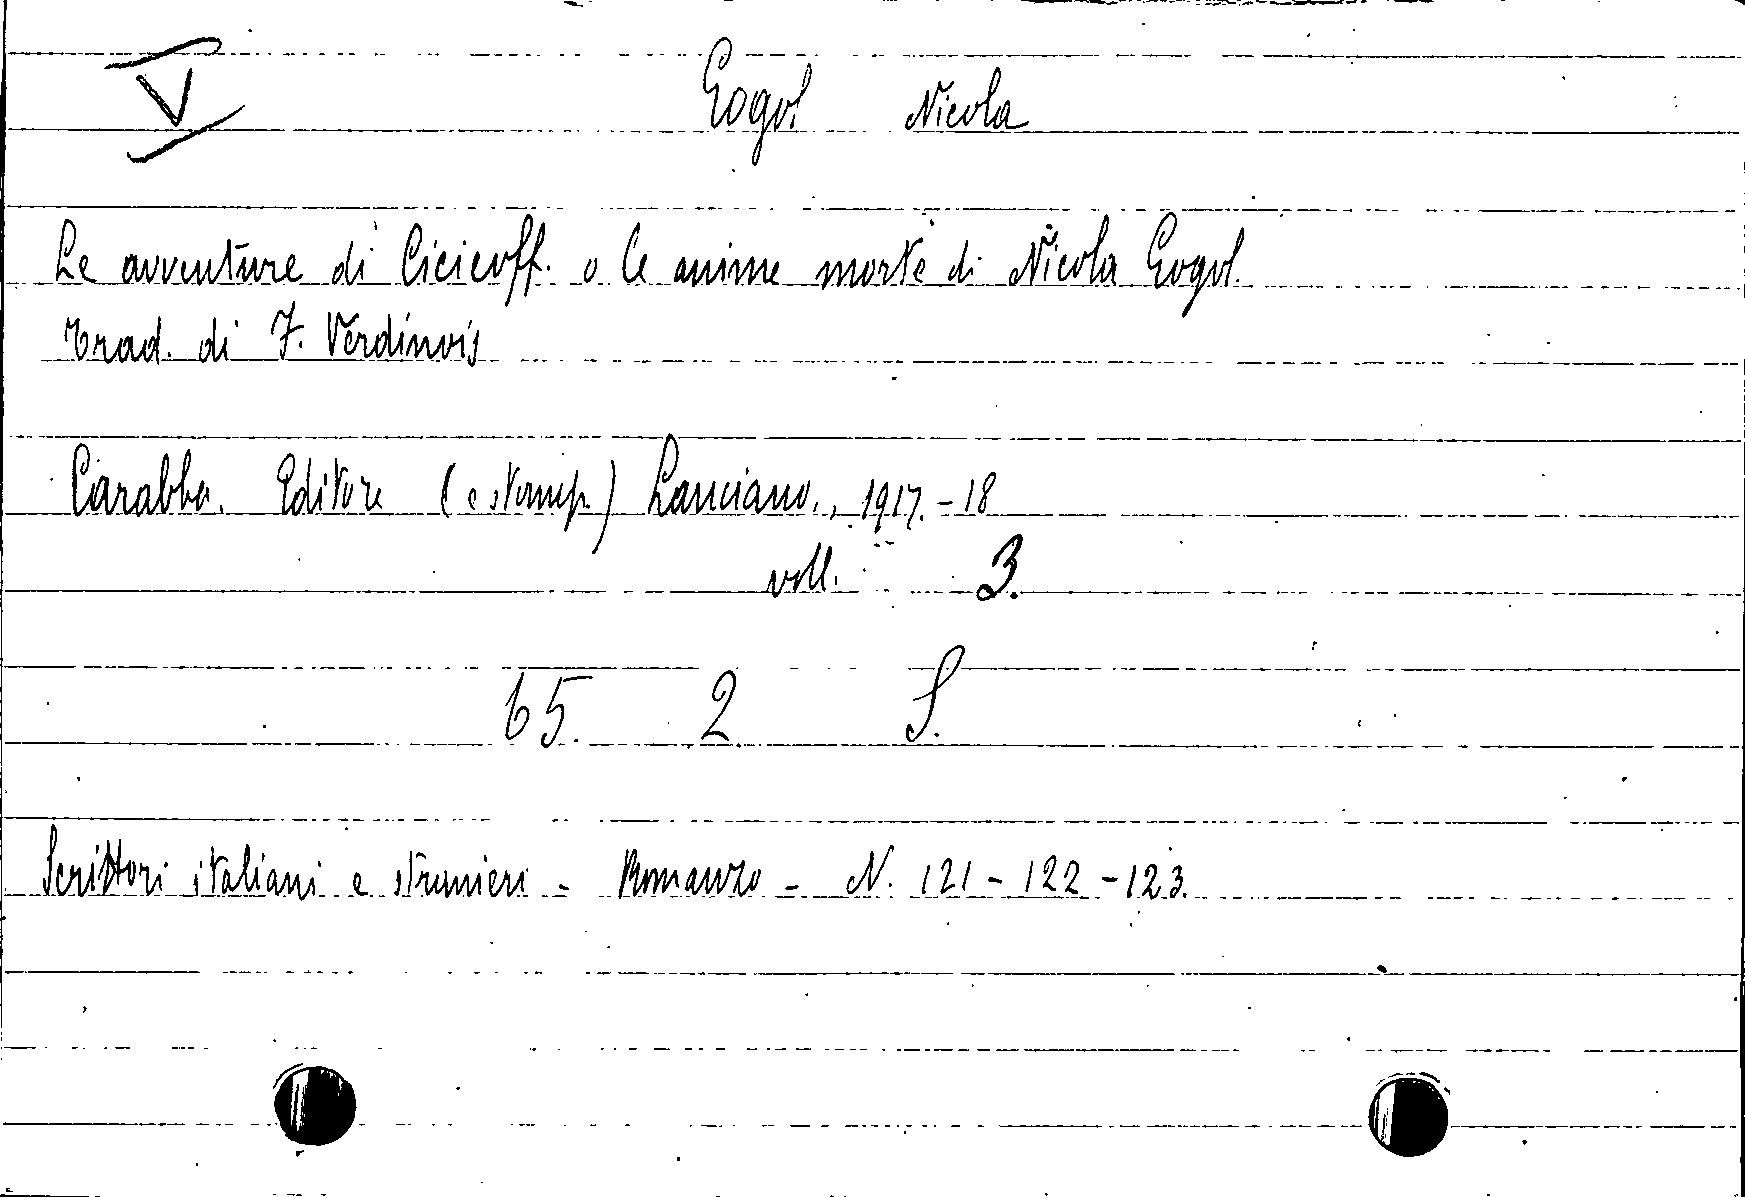 V
Gogol Nicola
Le avventure di Cicicoff. o le anime morte di Nicola Gogol.
Trad. di F. Verdinois
Carabba. Editore (e stamp.) Lanciano., 1917.-18
voll. 3.
65. 2. S.
Scrittori italiani e stranieri - Romanzo - N. 121-122-123.